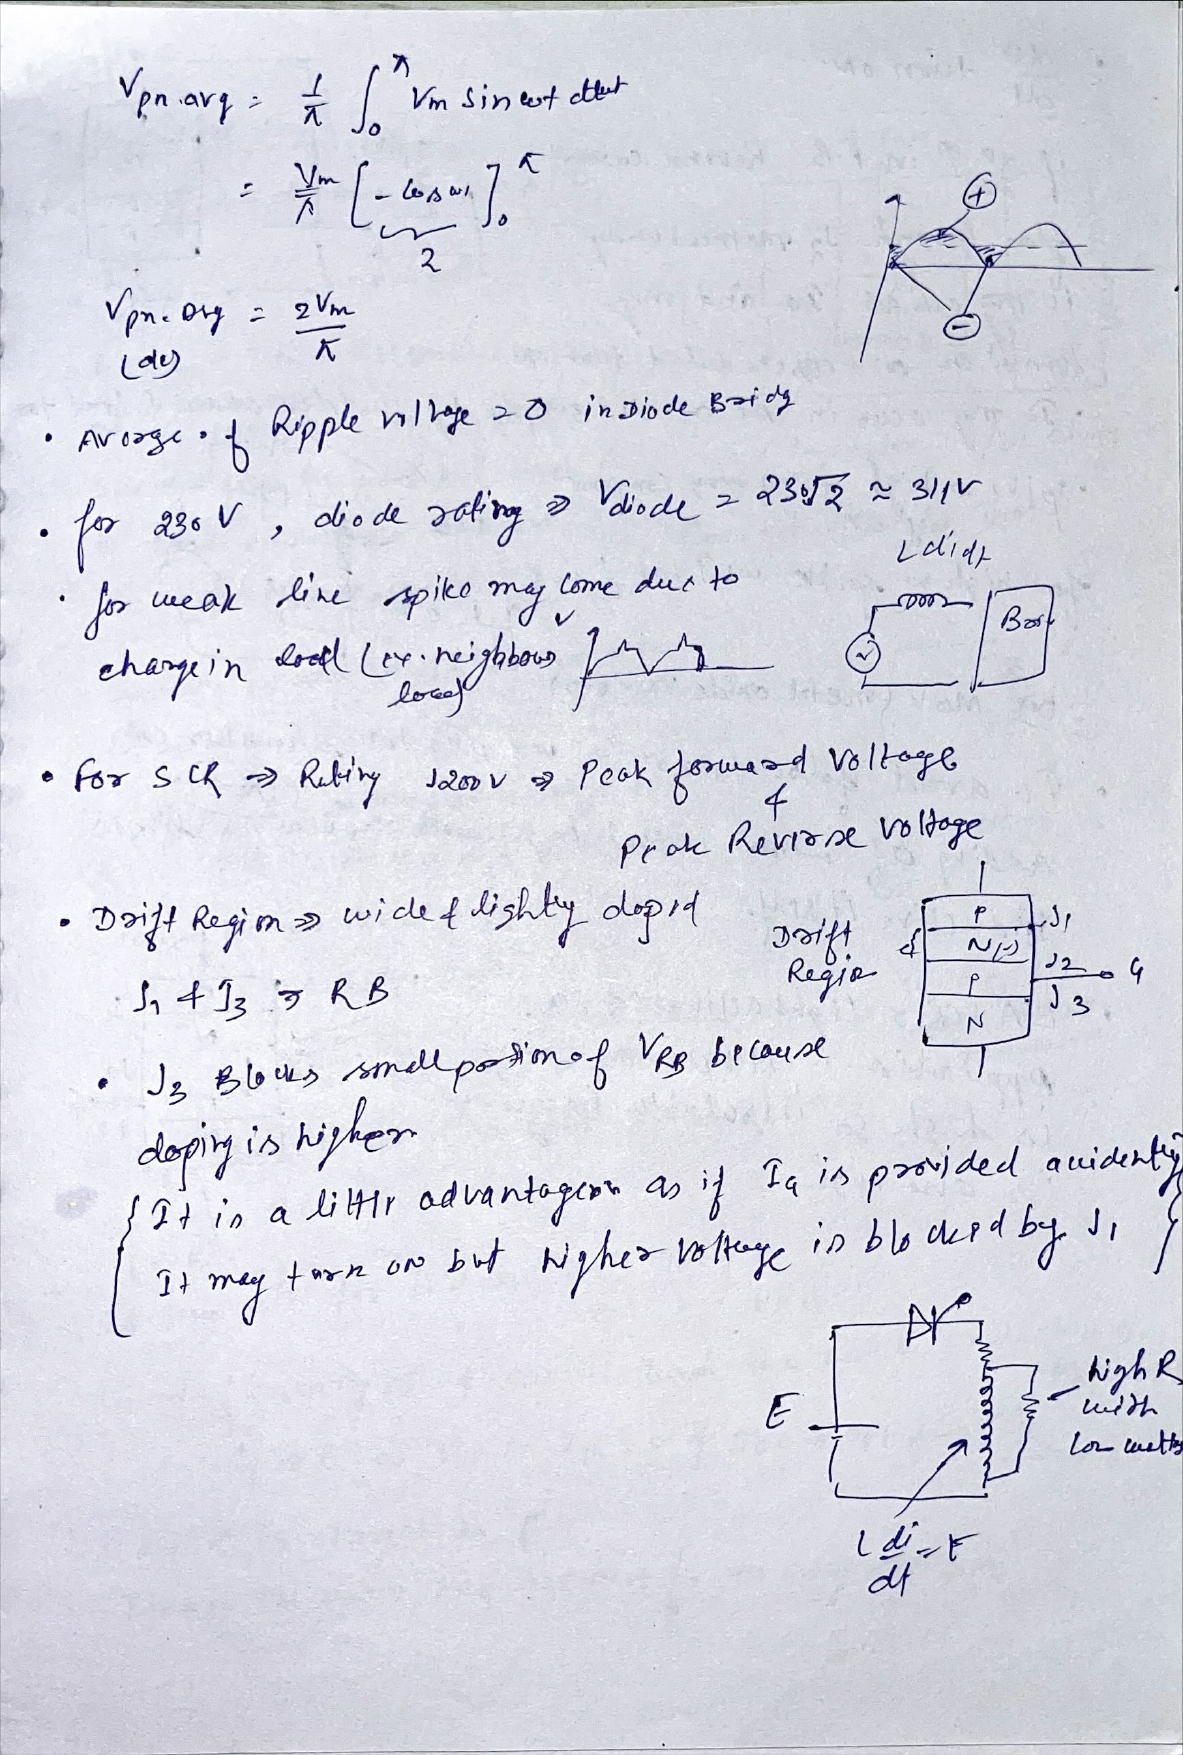 Vpn.avg = 1/π ∫₀^π Vm Sin ωt dωt
= Vm/π [- cos ωt]₀^π
2
Vpn.avg = 2Vm/π
(dc)
+
−
• Avarge of Ripple voltage = 0 in Diode Bridg
• for 230 V, diode rating ⇒ Vdiode = 230√2 ≈ 311V
L di/dt
• for weak line spike may come due to
change in load (ex. neighbour
load)
• For SCR ⇒ Rating 1200V ⇒ Peak forward Voltage
&
Peak Reverse Voltage
• Drift Region ⇒ wide & lightly doped
Drift
Regio
P
N(-)
P
N
J1
J2
J3
G
J1 & J3 ⇒ RB
• J3 Blocks small portion of VRB because
doping is higher
{ It is a little advantageous as if IG is provided accidently
It may turn on but higher Voltage is blocked by J1 }
E
high R
with
low watts
L di/dt = E